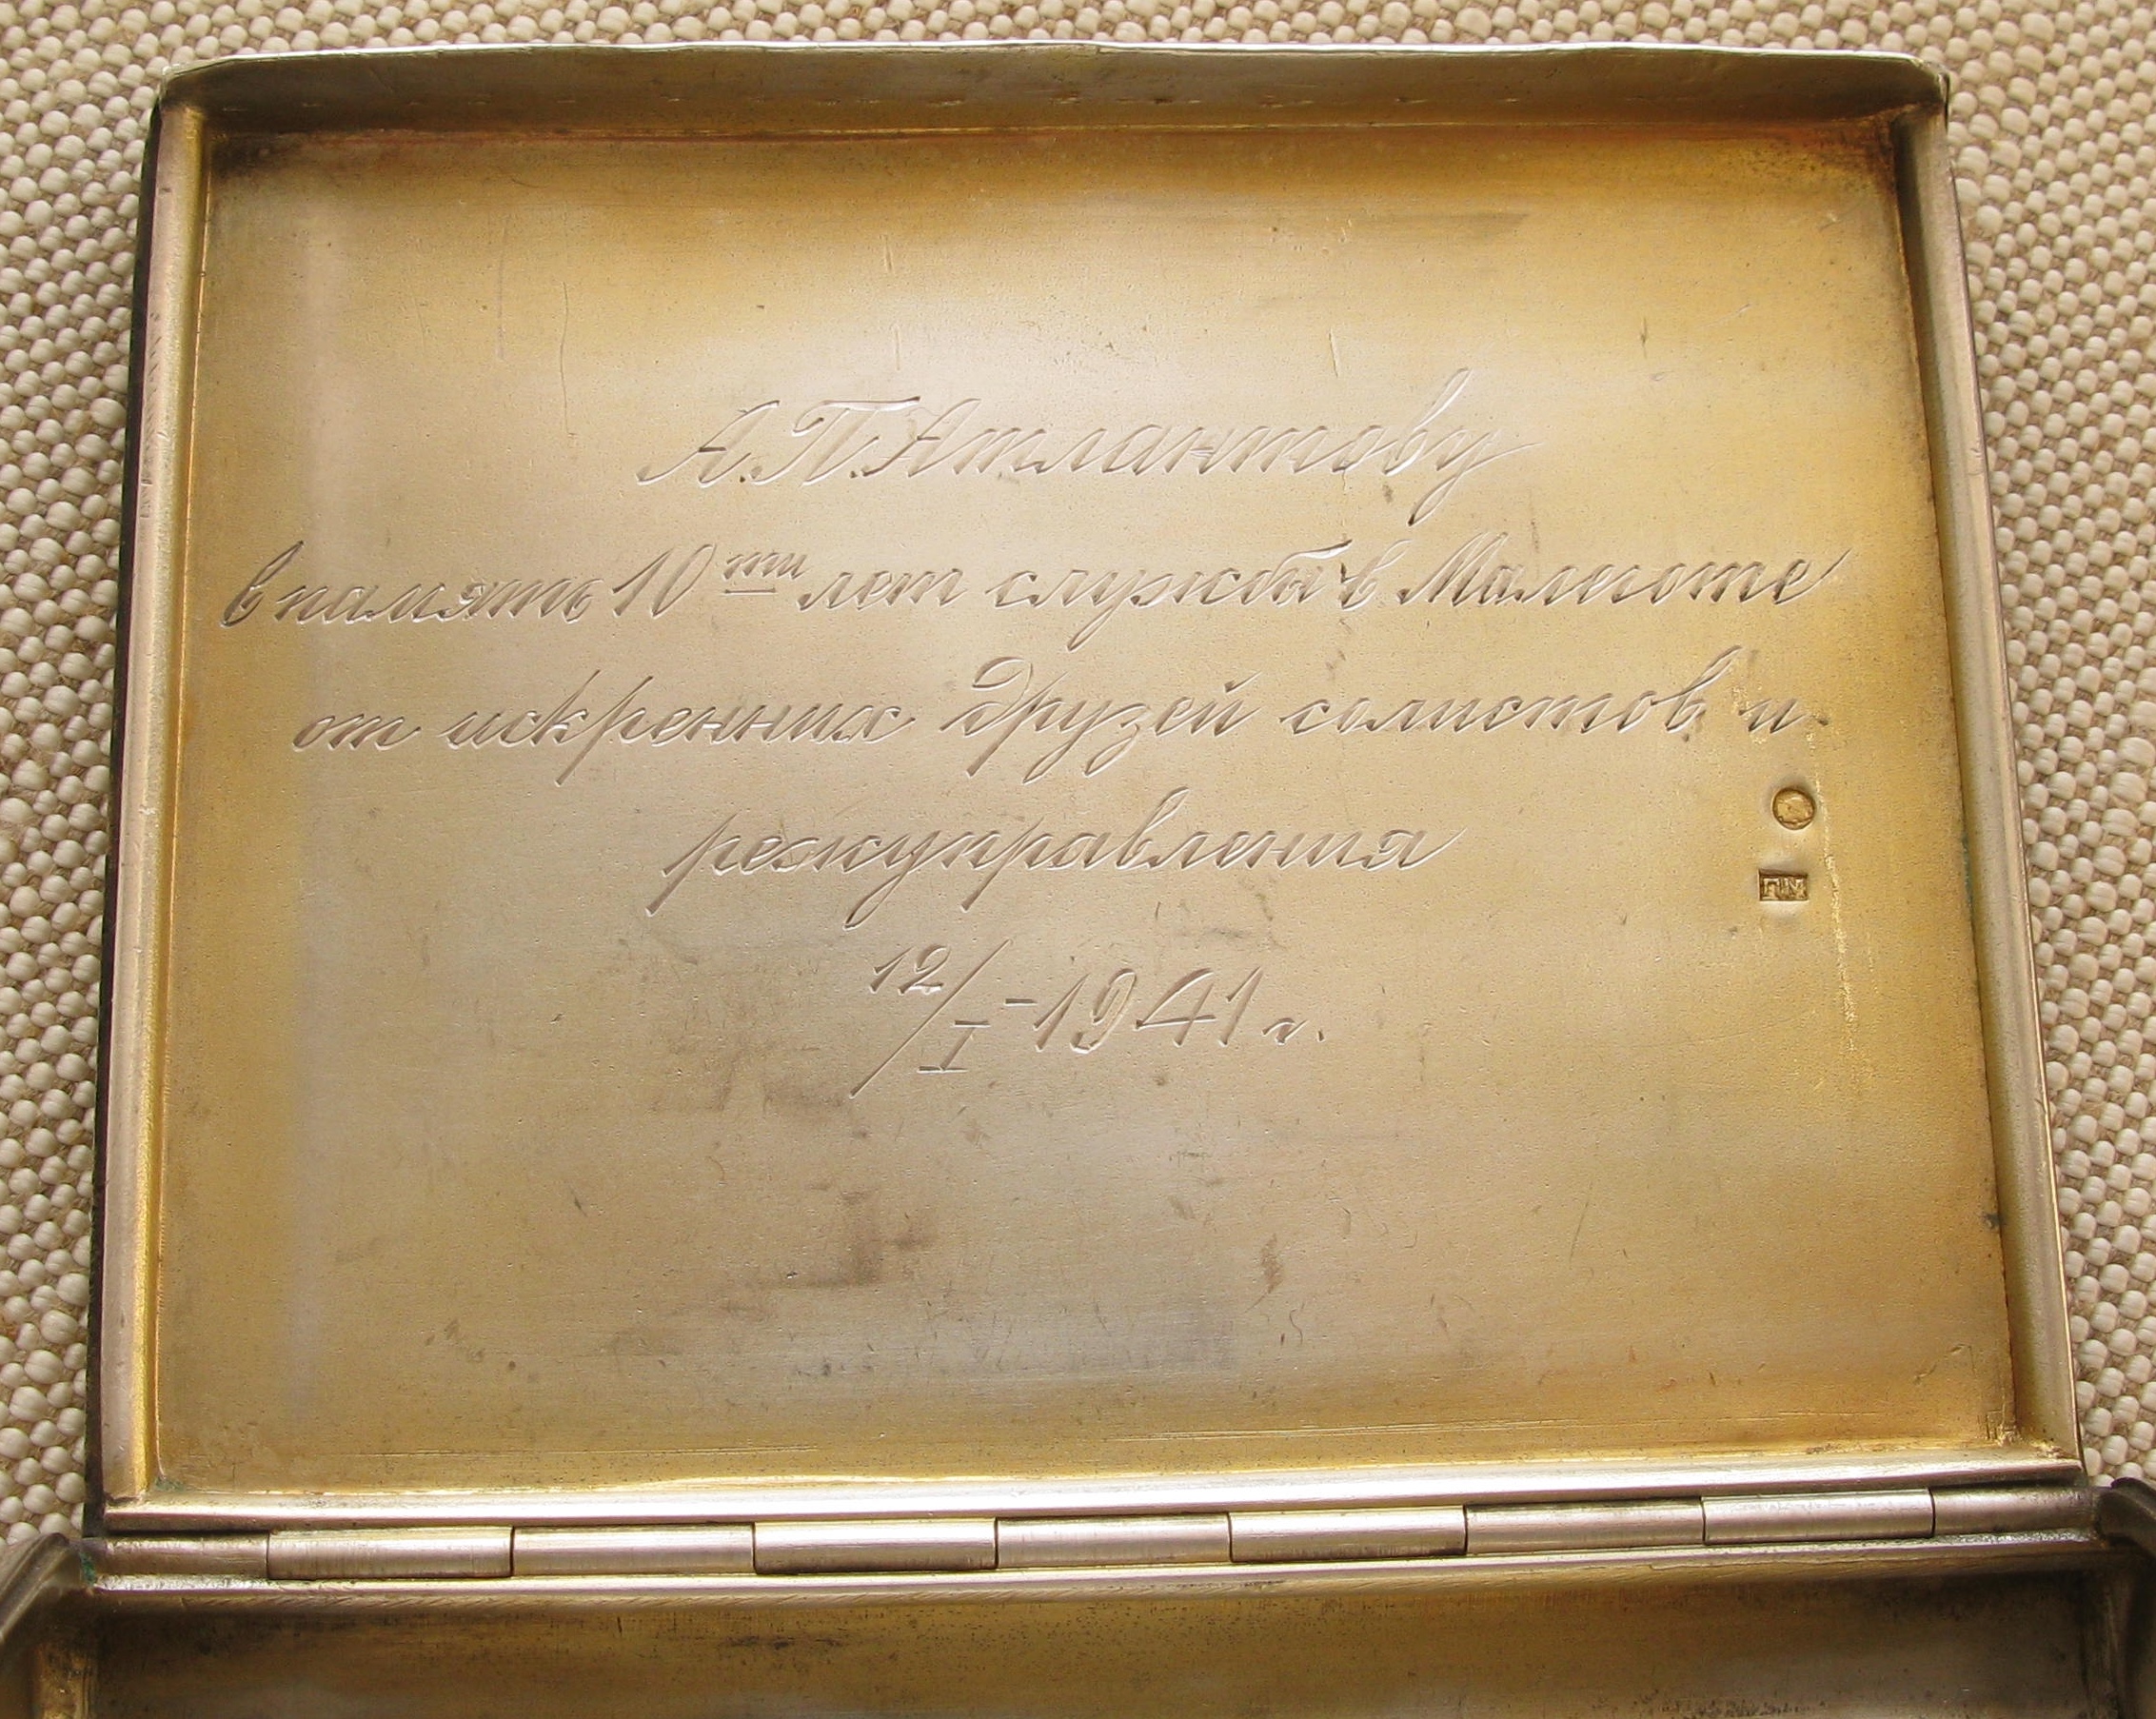 А.П. Атлантову
в память 10ти лет службы в Малеготе
от искренних друзей солистов и
режуправления
12/I-1941 г.